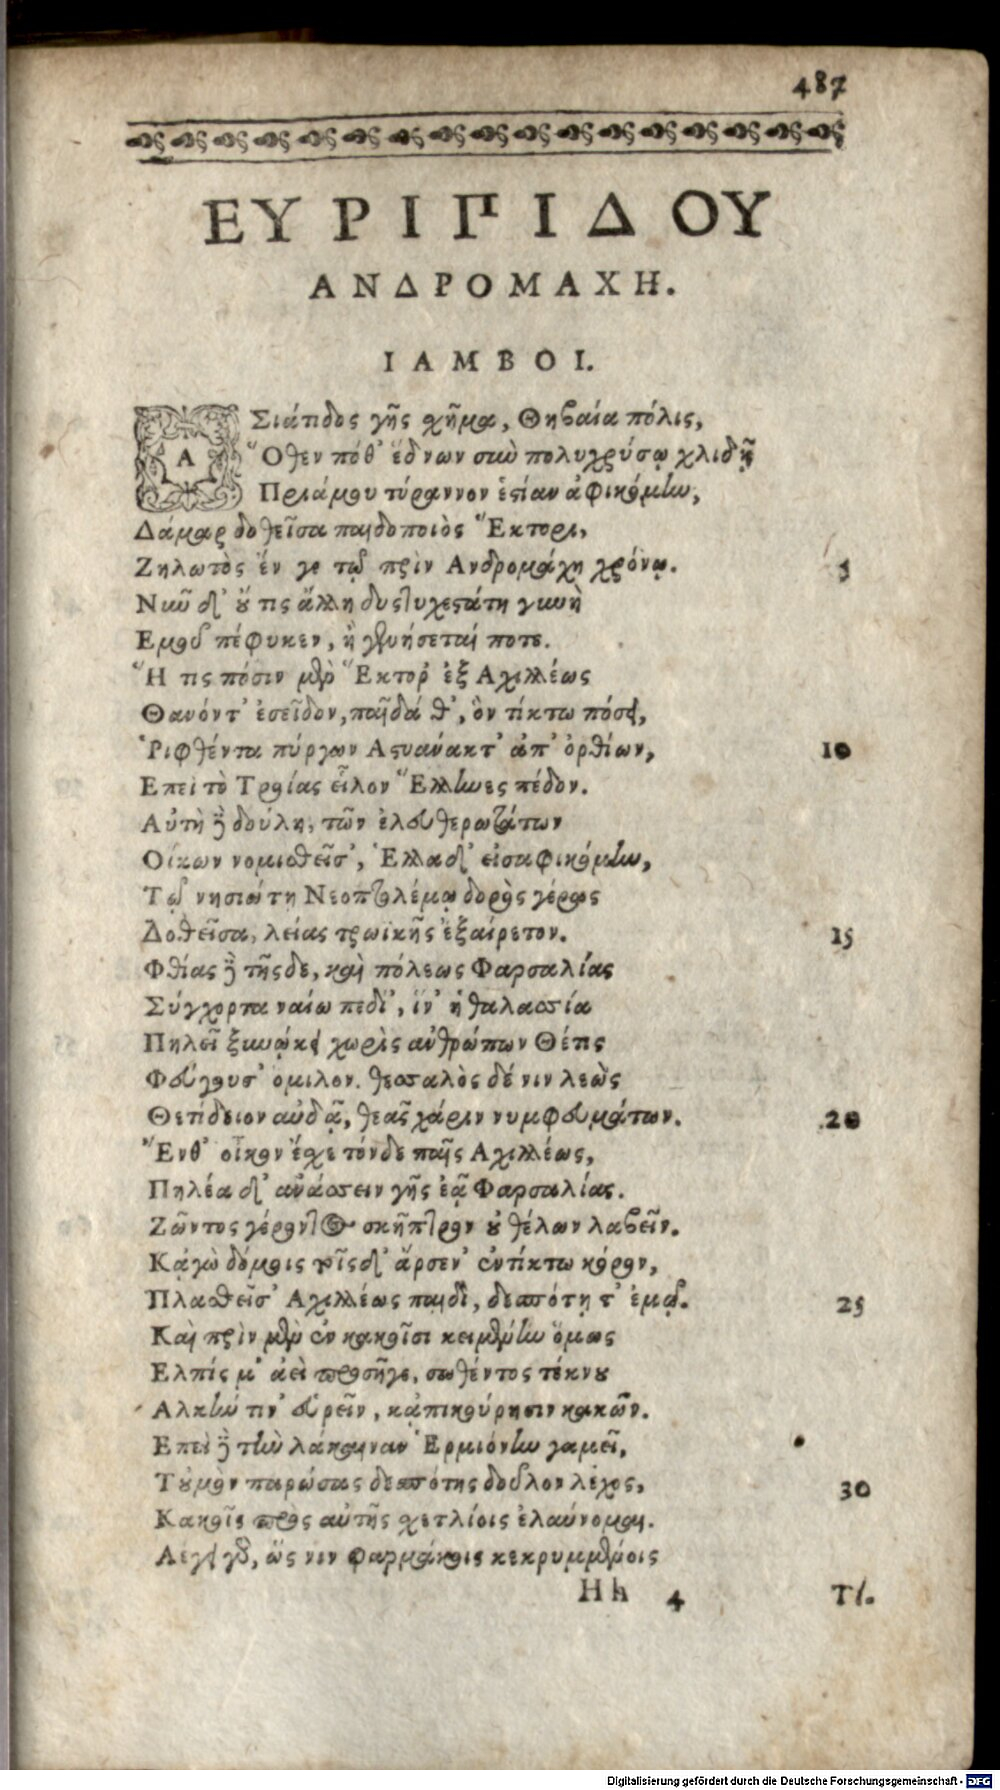 487
ΕΥΡΙΠΙΔΟΥ
ΑΝΔΡΟΜΑΧΗ.
ΙΑΜΒΟΙ.
ΑΣιάτιδος γῆς σχῆμα, Θηβαία πόλις,
Ὅθεν πόθ' ἕδνων σὺν πολυχρύσῳ χλιδῇ
Πριάμου τύραννον ἑστίαν ἀφικόμην,
Δάμαρ δοθεῖσα παιδοποιὸς Ἕκτορι,
Ζηλωτὸς ἔν γε τῷ πρὶν Ανδρομάχη χρόνῳ. 5
Νῦν δ' οὔ τις ἄλλη δυστυχεστάτη γυνὴ
Εμοῦ πέφυκεν, ἢ γενήσεταί ποτε.
Ἥ τις πόσιν μὲν Ἕκτορ' ἐξ Αχιλλέως
Θανόντ' ἐσεῖδον, παῖδά θ', ὃν τίκτω πόσει,
Ῥιφθέντα πύργων Αστυάνακτ' ἀπ' ὀρθίων, 10
Επεὶ τὸ Τροίας εἷλον Ἕλληνες πέδον.
Αὐτὴ δὲ δούλη, τῶν ἐλευθερωτάτων
Οίκων νομισθεῖσ', Ἑλλαδ' εἰσαφικόμην,
Τῷ νησιώτῃ Νεοπτολέμῳ δορὸς γέρας
Δοθεῖσα, λείας τρωϊκῆς ἐξαίρετον. 15
Φθίας δὲ τῆςδε, καὶ πόλεως Φαρσαλίας
Σύγχορτα ναίω πεδί', ἵν' ἡ θαλασσία
Πηλεῖ ξυνῴκει χωρὶς ἀνθρώπων Θέτις
Φεύγουσ' ομιλον. θεσσαλὸς δέ νιν λεὼς
Θετίδειον αὐδᾷ, θεᾶς χάριν νυμφευμάτων. 20
Ἔνθ' οἶκον ἔσχε τόνδε παῖς Αχιλλέως,
Πηλέα δ' ἀνάσσειν γῆς ἐᾷ Φαρσαλίας.
Ζῶντος γέροντος σκῆπτρον οὐ θέλων λαβεῖν.
Κᾀγὼ δόμοις τοῖςδ' ἄρσεν' ἐντίκτω κόρον,
Πλασθεῖσ' Αχιλλέως παιδὶ, δεσπότῃ τ' ἐμῷ. 25
Καὶ πρὶν μὲν ἐν κακοῖσι κειμένην ὅμως
Ελπίς μ' ἀεὶ προσῆγε, σωθέντος τέκνου
Αλκήν τιν' εὑρεῖν, κᾀπικούρησιν κακῶν.
Επεὶ δὲ τὴν λάκαιναν Ἑρμιόνην γαμεῖ,
Τοὐμὸν παρώσας δεσπότης δοῦλον λέχος, 30
Κακοῖς πρὸς αὐτῆς σχετλίοις ἐλαύνομαι.
Λέγει γὰρ, ὥς νιν φαρμάκοις κεκρυμμένοις
Hh 4 Τί.
Digitalisierung gefördert durch die Deutsche Forschungsgemeinschaft - DFG